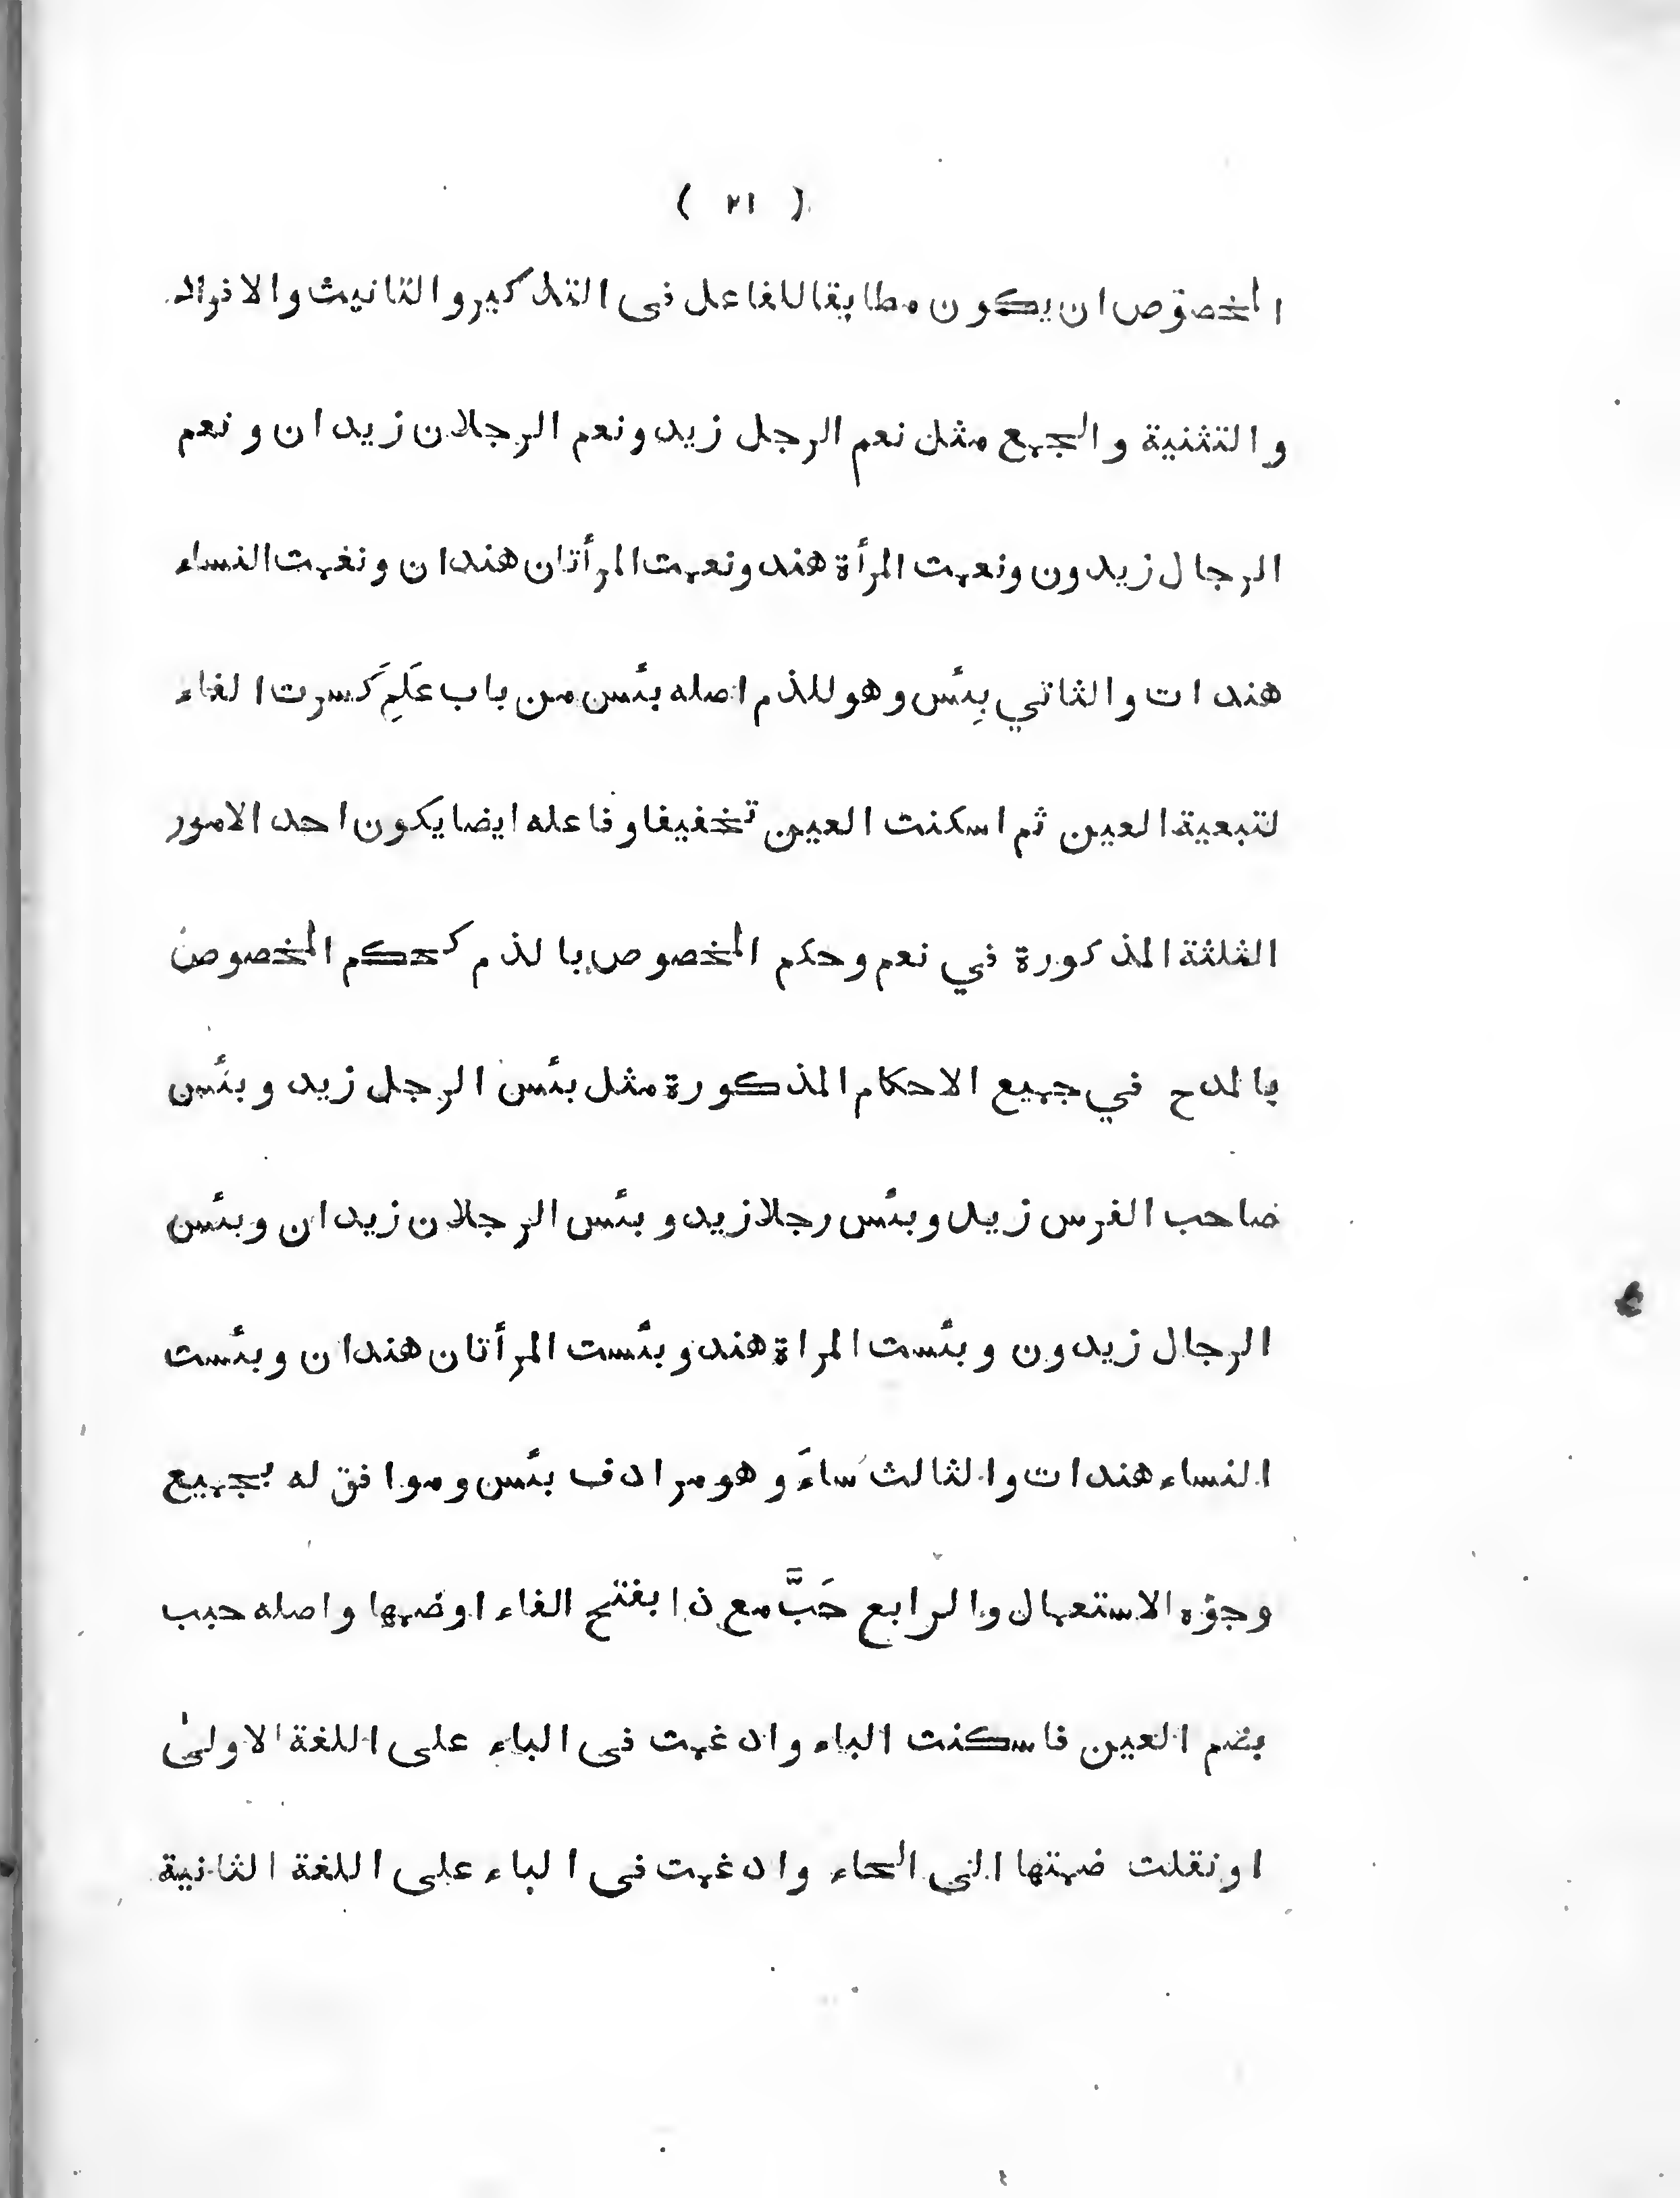 ( ٢١ )
المخصوص ان يكون مطابقا للفاعل فى التذكير والتانيث والافراد
والتثنية والجمع مثل نعم الرجل زيد ونعم الرجلان زيدان ونعم
الرجال زيدون ونعمت المرأة هند ونعمت المرأتان هندان ونعمت النساء
هندات والثاني بِئس وهو للذم اصله بئس من باب عَلِمَ كسرت الفاء
لتبعية العين ثم اسكنت العين تخفيفا وفاعله ايضا يكون احد الامور
الثلثة المذكورة في نعم وحكم المخصوص بالذم كحكم المخصوص
بالمدح في جميع الاحكام المذكورة مثل بئس الرجل زيد وبئس
صاحب الفرس زيد وبئس رجلا زيد وبئس الرجلان زيدان وبئس
الرجال زيدون وبئست المراة هند وبئست المرأتان هندان وبئست
النساء هندات والثالث ساءَ وهو مرادف بئس وموافق له بجميع
وجوه الاستعمال والرابع حَبَّ مع ذا بفتح الفاء اوضمها واصله حبب
بضم العين فاسكنت الباء وادغمت فى الباء على اللغة الاولىٰ
اونقلت ضمتها الى الحاء وادغمت فى الباء على اللغة الثانية